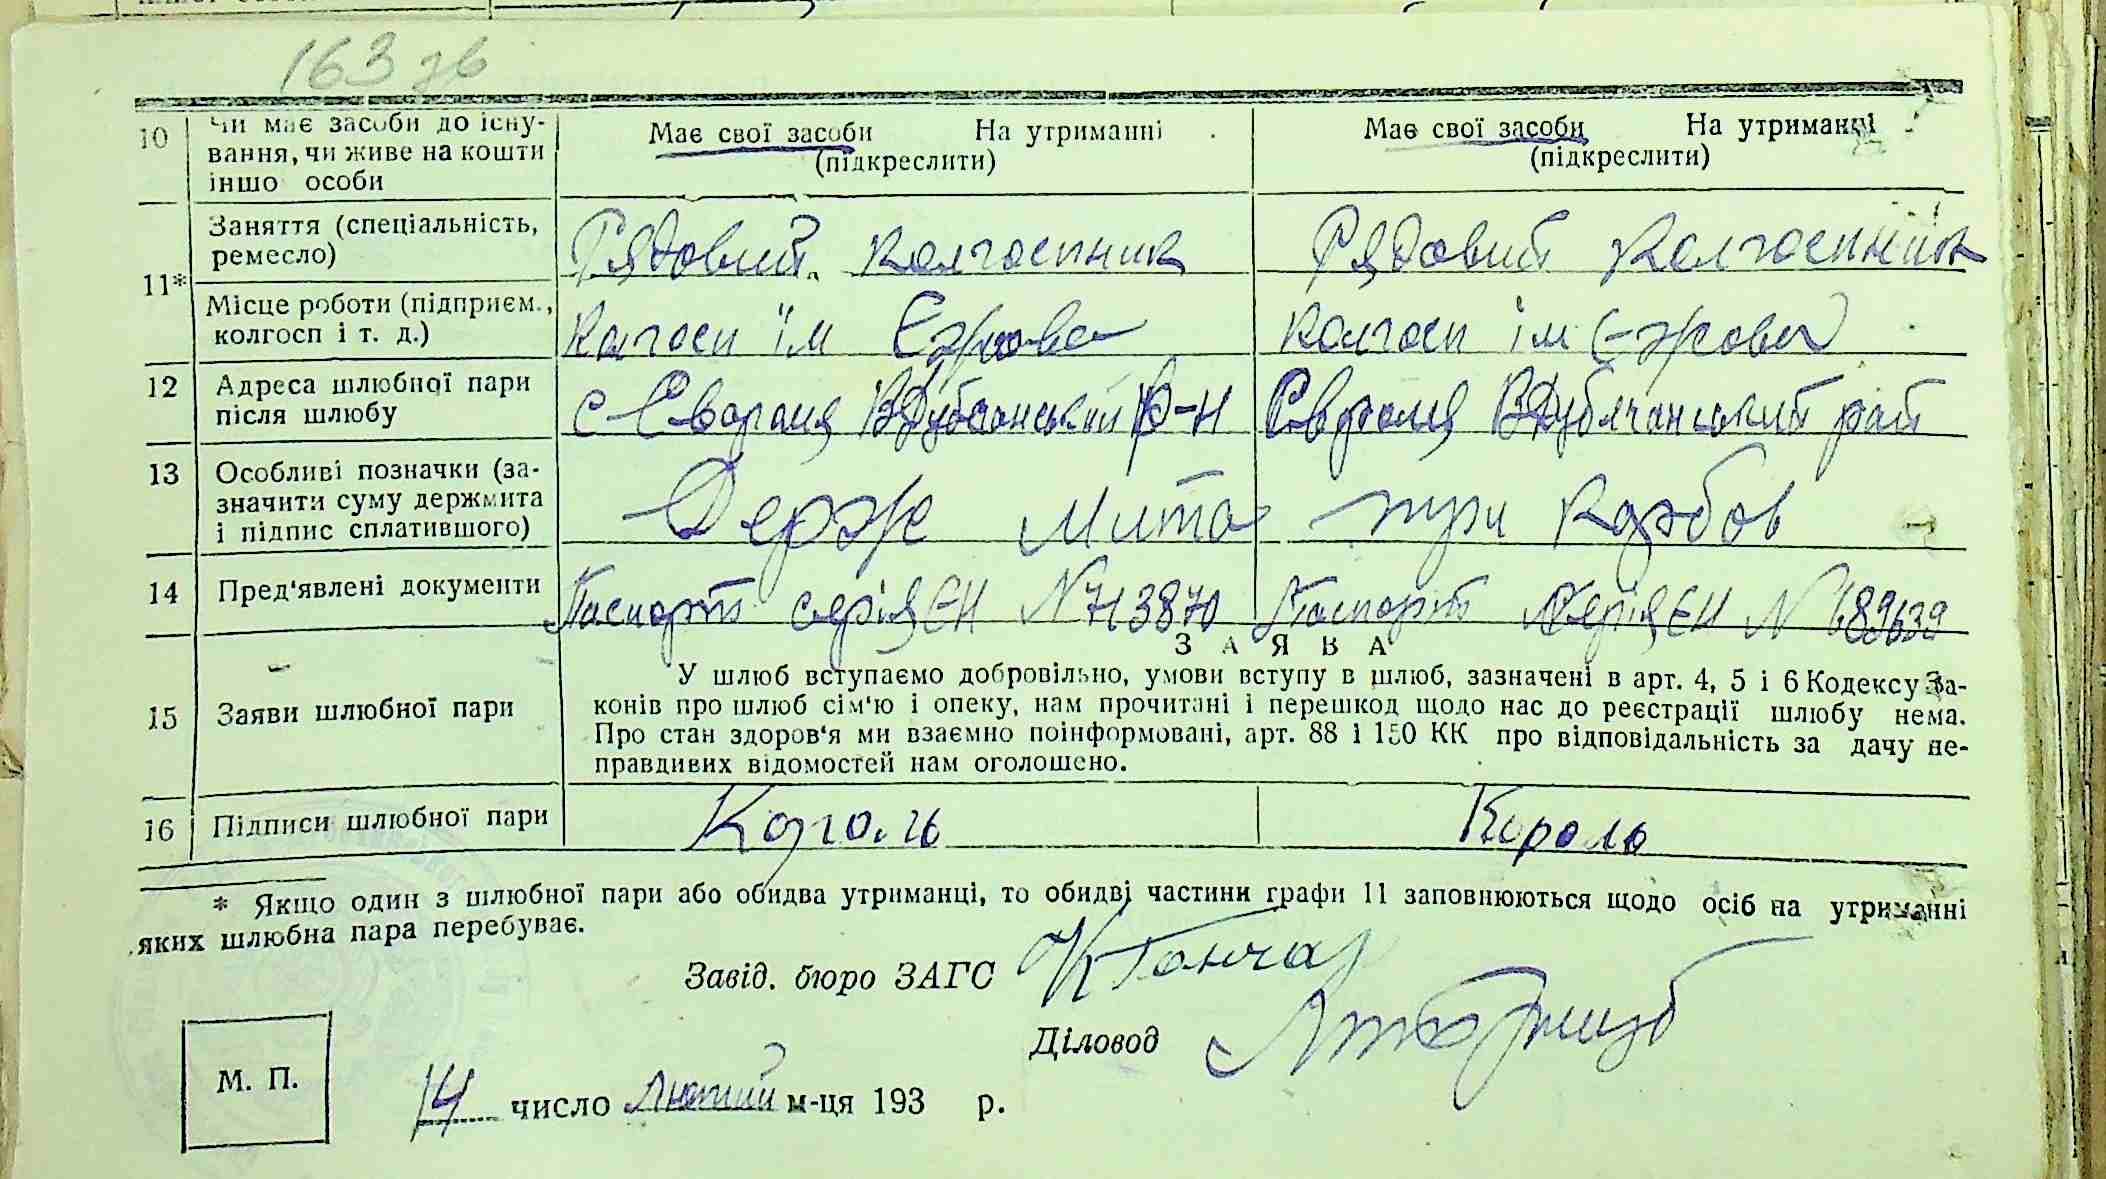 163 зв
10 Чи має засоби до існу- Має свої засоби На утриманні Має свої засоби На утриманні
вання, чи живе на кошти (підкреслити) (підкреслити)
іншо особи
11* Заняття (спеціальність, Рядовий колгоспник Рядовий колгоспник
ремесло)
Місце роботи (підприєм., колгосп і т. д.) Колгосп ім Єжова Колгосп ім Єжова
12 Адреса шлюбної пари після шлюбу В Дубечанський р-н В Дубечанський рай
13 Особливі позначки (за-
значити суму держмита Держ мита три карбов
і підпис сплатившого)
14 Пред'явлені документи Паспорт серія ЄН N 713870 Паспорт серія ЄН N 689639
З А Я В А
15 Заяви шлюбної пари
У шлюб вступаємо добровільно, умови вступу в шлюб, зазначені в арт. 4, 5 і 6 Кодексу За-
конів про шлюб сім'ю і опеку, нам прочитані і перешкод щодо нас до реєстрації шлюбу нема.
Про стан здоров'я ми взаємно поінформовані, арт. 88 і 150 КК про відповідальність за дачу не-
правдивих відомостей нам оголошено.
16 Підписи шлюбної пари Король Король
* Якщо один з шлюбної пари або обидва утриманці, то обидві частини графи 11 заповнюються щодо осіб на утриманні
яких шлюбна пара перебуває.
Завід. бюро ЗАГС Гончар
Діловод
М. П.
14 число Лютий м-ця 193 р.